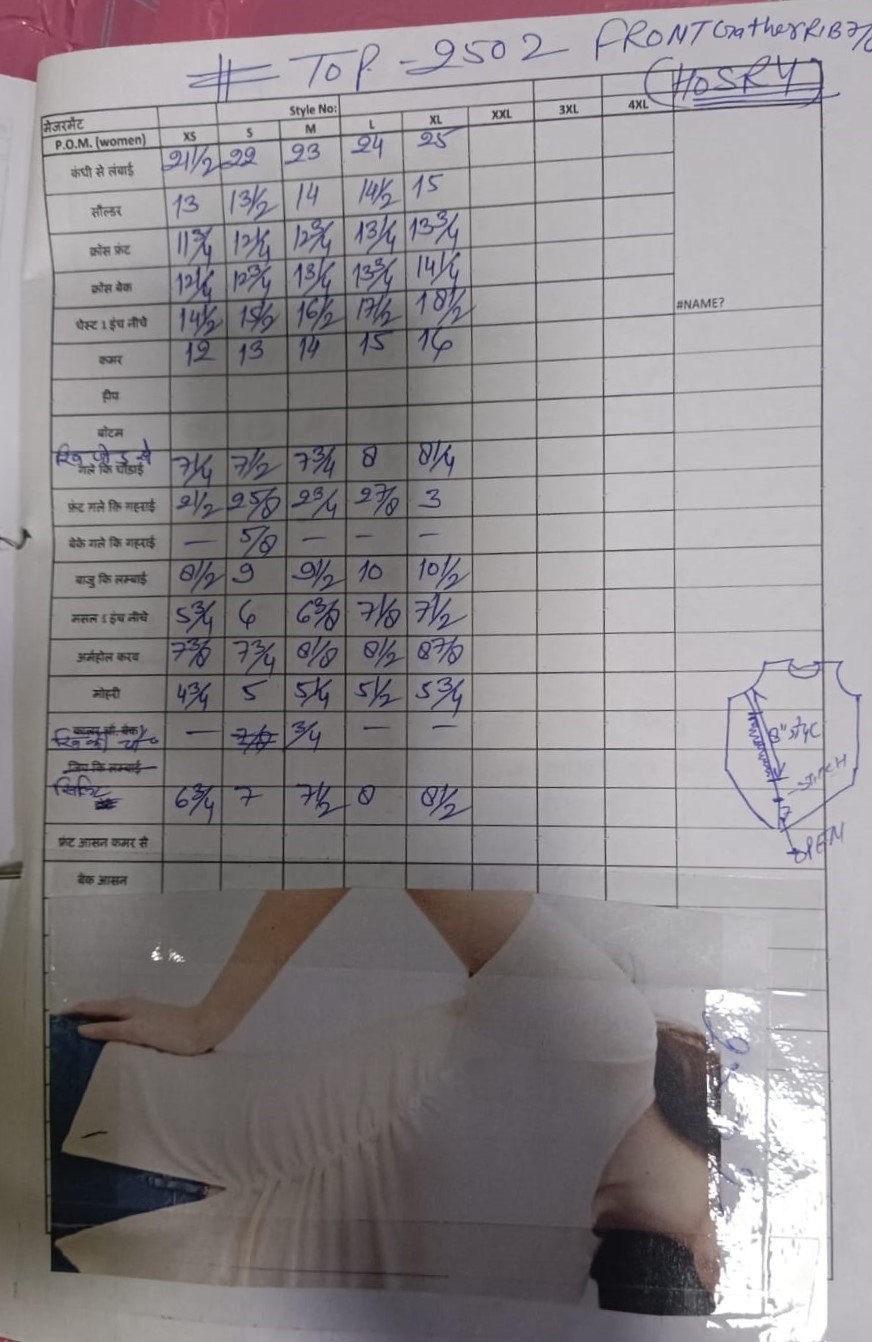 # TOP - 2502 FRONT Gather RIB 7/8
(HOSRY)
मेजरमेंट Style No:
P.O.M. (women) XS S M L XL XXL 3XL 4XL
कंधी से लंबाई 21 1/2 22 23 24 25
सौल्डर 13 13 1/2 14 14 1/2 15
क्रोस फ्रंट 11 3/4 12 1/4 12 3/4 13 1/4 13 3/4
क्रोस बेक 12 1/4 12 3/4 13 1/4 13 3/4 14 1/4
#NAME?
चेस्ट 1 इंच नीचे 14 1/2 15 1/2 16 1/2 17 1/2 18 1/2
कमर 12 13 14 15 16
हीप
बोटम
गले कि चौडाई 7 1/4 7 1/2 7 3/4 8 8 1/4
फ्रंट गले कि गहराई 2 1/2 2 5/8 2 3/4 2 7/8 3
बेके गले कि गहराई — 5/8 — — —
बाजु कि लम्बाई 8 1/2 9 9 1/2 10 10 1/2
मसल 1 इंच नीचे 5 3/4 6 6 3/8 7 1/8 7 1/2
अर्महोल करव 7 3/8 7 3/4 8 1/8 8 1/2 8 7/8
मोहरी 4 3/4 5 5 1/4 5 1/2 5 3/4
— 7/8 3/4 — —
जिप कि लम्बाई
6 3/4 7 7 1/2 8 8 1/2
8"
STICH
OPEN
फ्रंट आसन कमर से
बेक आसन